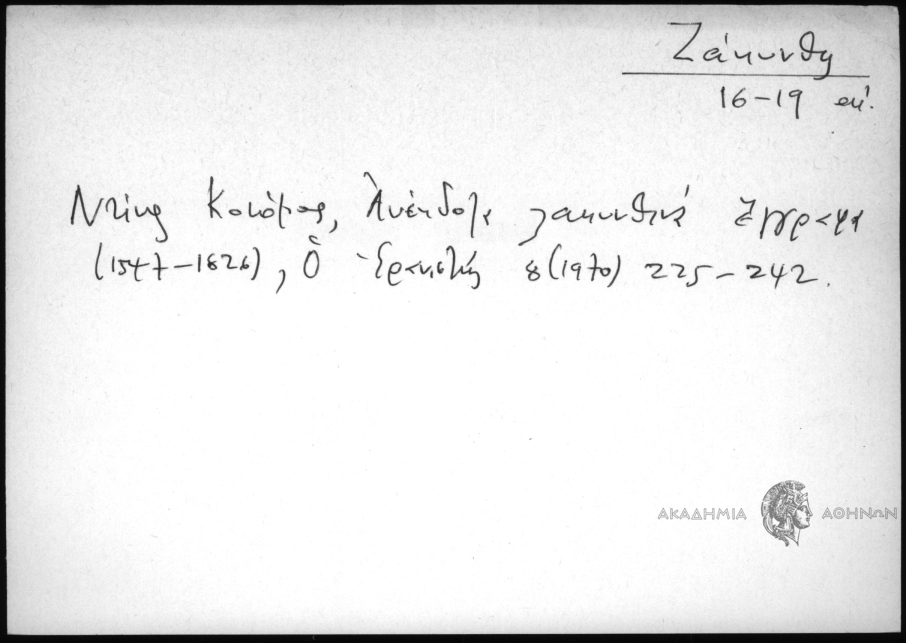 Ζάκυνθη
16-19 αἰ.
Ντῖνος Κονόμος, Ἀνέκδοτα ζακυνθινά ἔγγραφα
(1547-1826), Ὁ Ἐρανιστής 8(1970) 225-242.
ΑΚΑΔΗΜΙΑ ΑΘΗΝΩΝ